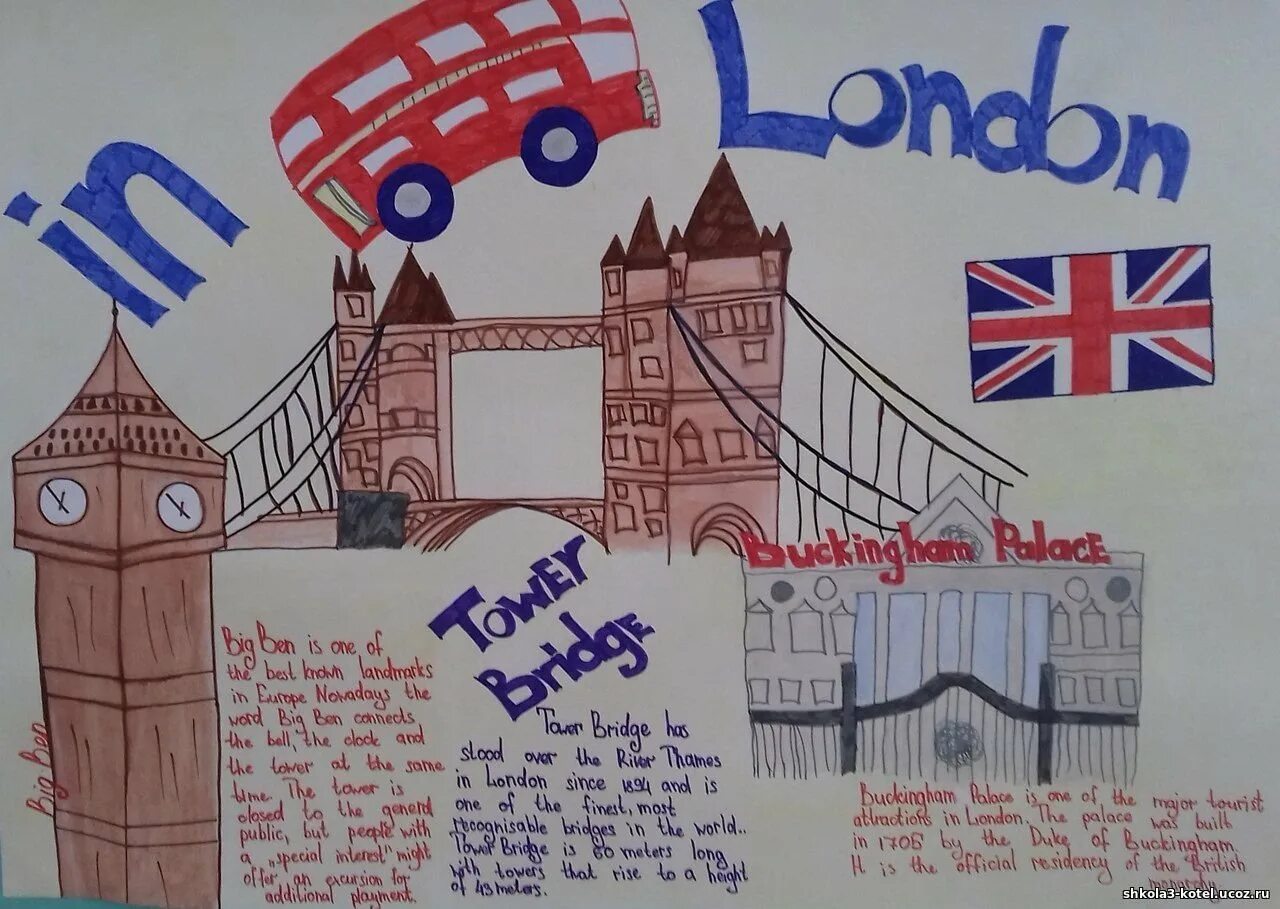 in
London
Buckingham Palace
Tower
Bridge
Big Ben
Big Ben is one of
the best known landmarks
in Europe Nowadays the
word Big Ben connects
the bell, the clock and
the tower at the same
time. The tower is
closed to the general
public, but people with
a „special interest" might
offer an excursion for
additional playment.
Tower Bridge has
stood over the River Thames
in London since 1894 and is
one of the finest, most
recognisable bridges in the world..
Tower Bridge is 60 meters long
with towers that rise to a height
of 43 meters.
Buckingham Palace is one of the major tourist
attractions in London. The palace was built
in 1705 by the Duke of Buckingham.
It is the official residency of the British
shkola3-kotel.ucoz.ru